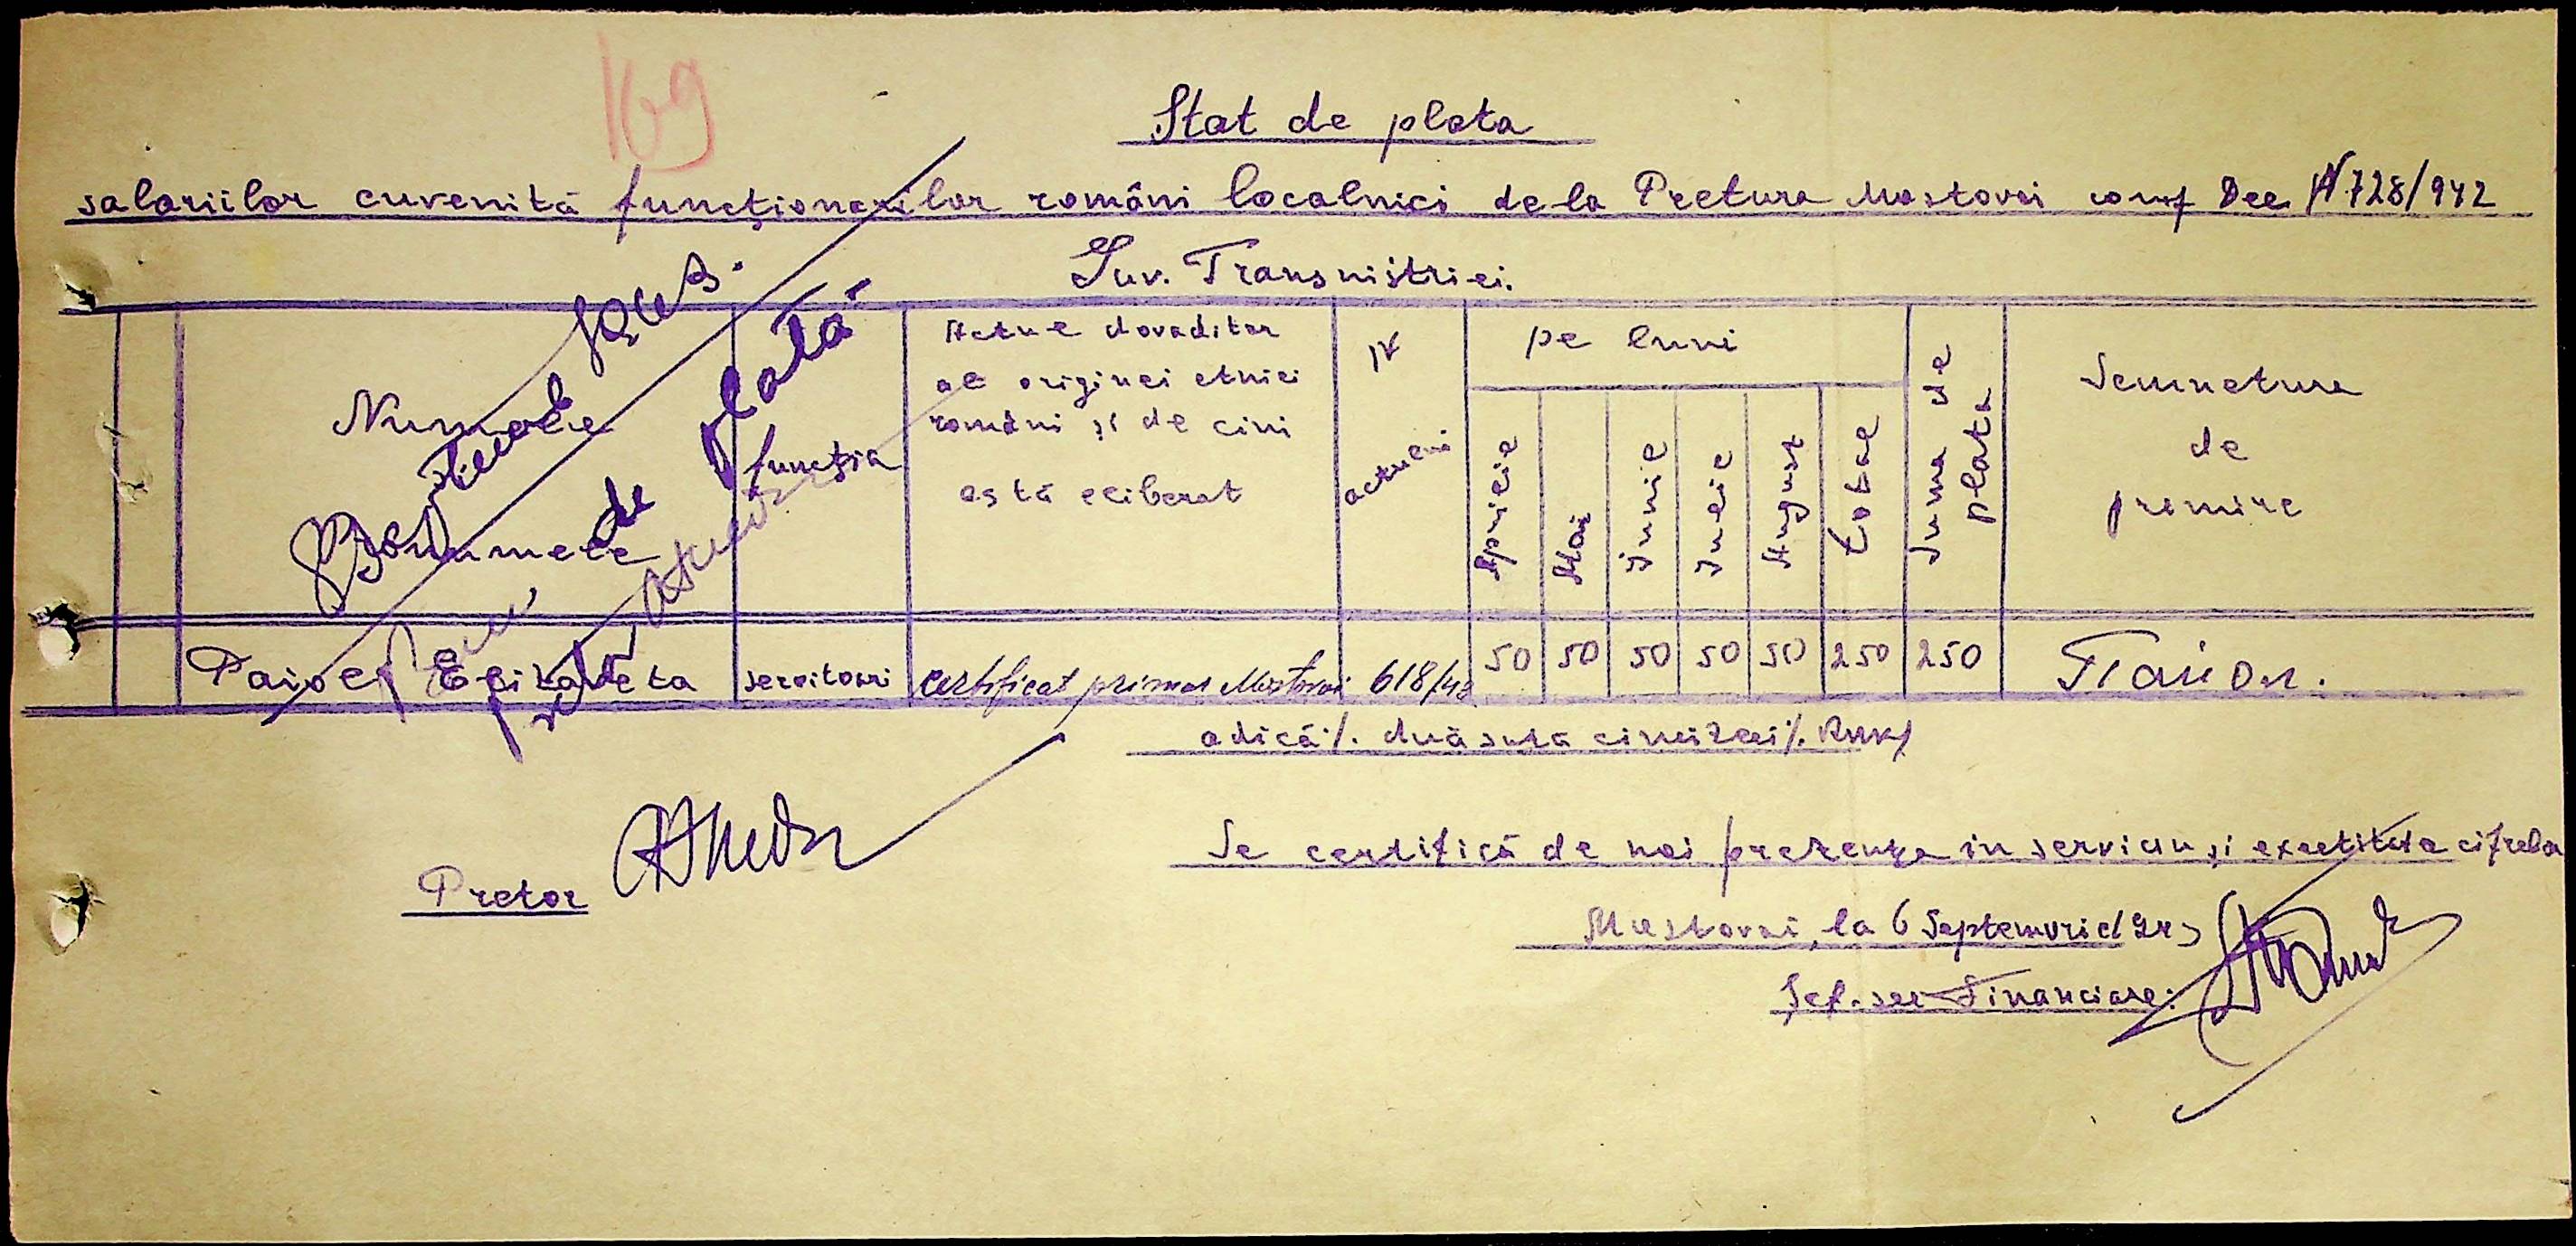 169
Stat de plata
salariilor cuvenită funcționarilor români localnici de la Pretura Mostovoi conf Dec N 728/942
Guv. Transnistriei.
Numele
Pronumele
funcția
Actul dovaditor
al originei etnici
români și de cini
estă eliberat
N
actului
pe luni
Aprilie
Mai
Junie
Julie
August
total
Suma de
plata
Semnetura
de
primire
de plată
Paioel Elizabeta servitoari certificat primar Mostovoi 618/42 50 50 50 50 50 250 250 Паиол.
adică %. duă sută cincizeci %. RKKS
Pretor
Se certifică de noi prezența in serviciu și exactitatea cifrelor
Mostovoi, la 6 Septemvrie 1943
Șef. ser Financiare: